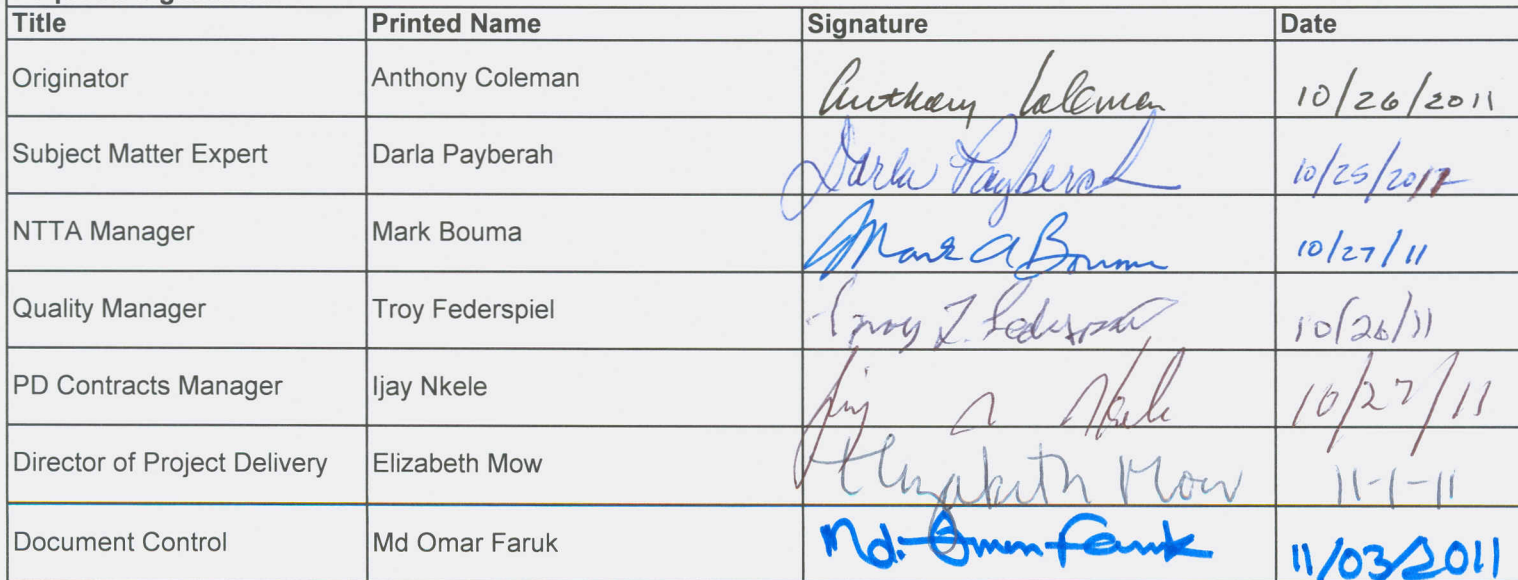 Title Printed Name Signature Date
Originator Anthony Coleman Anthony Coleman 10/26/2011
Subject Matter Expert Darla Payberah Darla Payberah 10/25/2011
NTTA Manager Mark Bouma Mark A Bouma 10/27/11
Quality Manager Troy Federspiel Troy L. Federspiel 10/26/11
PD Contracts Manager Ijay Nkele Ijay N Nkele 10/27/11
Director of Project Delivery Elizabeth Mow Elizabeth Mow 11-1-11
Document Control Md Omar Faruk Md. Omar Faruk 11/03/2011